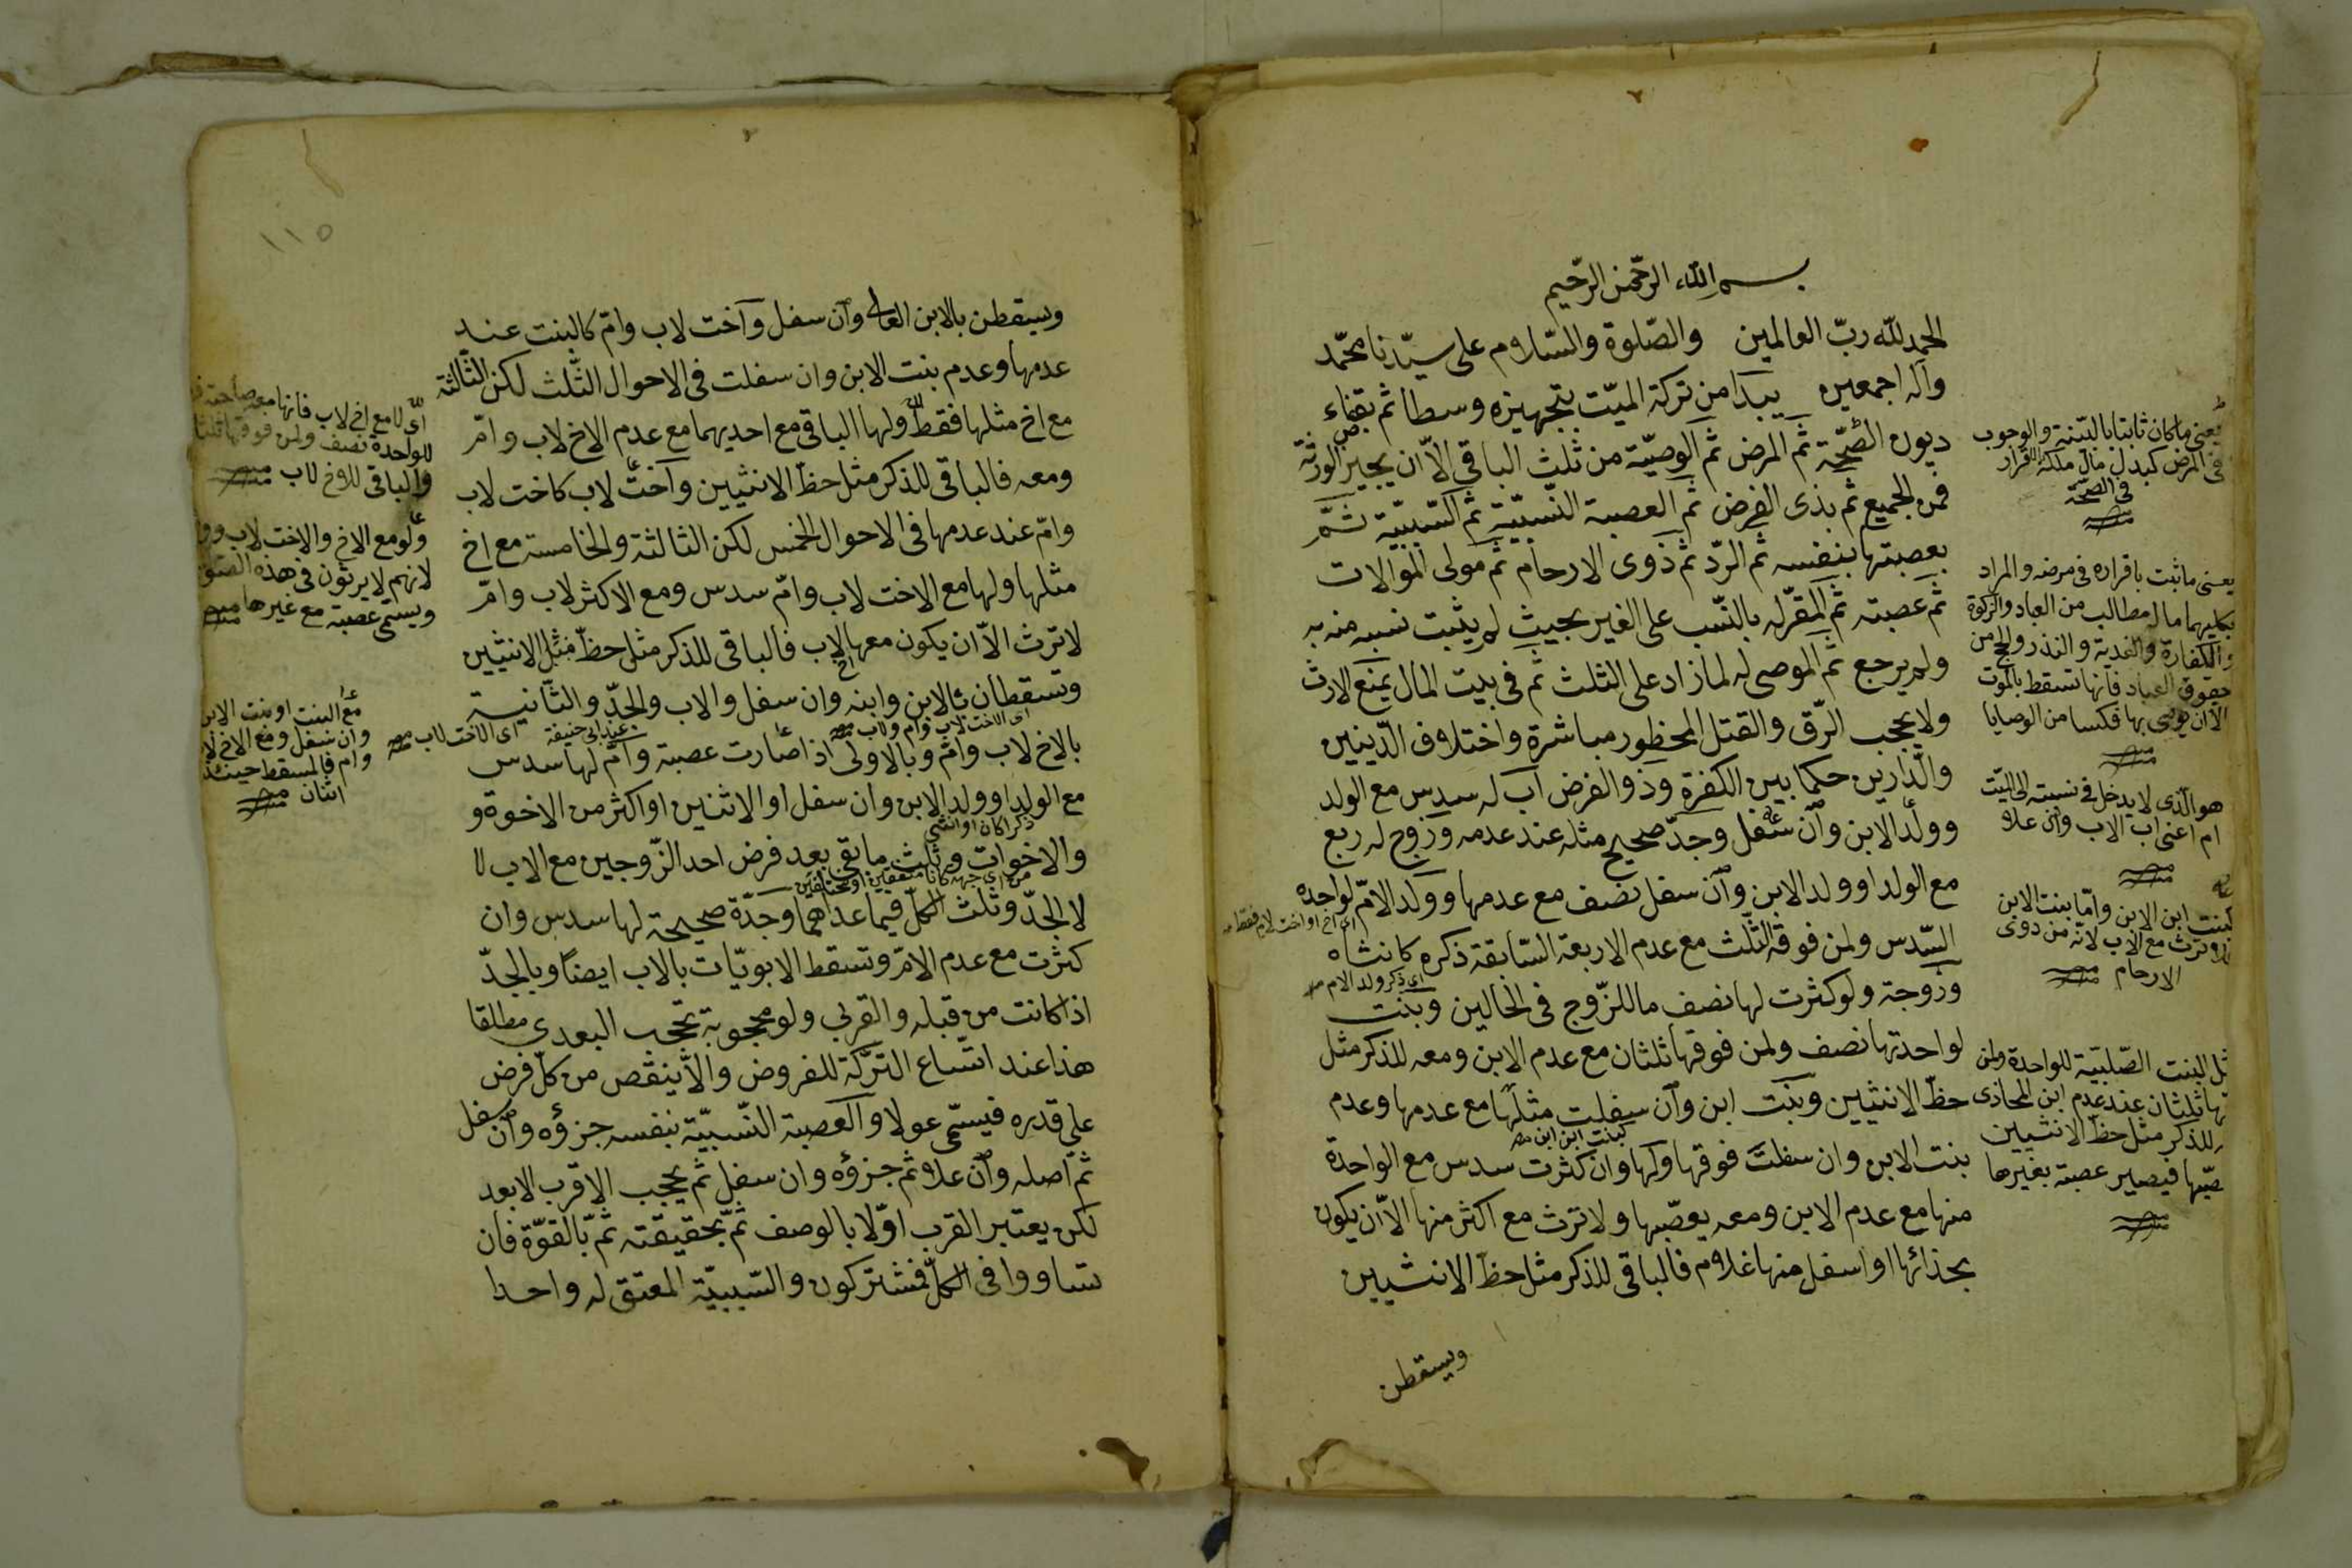 بسم الله الرّحمن الرّحيم
الحمد لله ربّ العالمين والصّلوة والسّلام على سيّدنا محمّد
وآله اجمعين يبدا من تركة الميّت بتجهيزه وسطا ثم بقضاء
ديون الصّحّة ثم المرض ثم الوصيّة من ثلث الباقي الاّ ان يجيز الورثة
فمن الجميع ثم بذى الفرض ثم العصبة النّسبيّة ثم السّببيّة ثمّ
بعصبتها بنفسه ثم الرّد ثم ذوى الارحام ثم مولى الموالات
ثم عصبته ثم المقرّ له بالنّسب على الغير بحيث لم يثبت نسبه منه به
ولم يرجع ثم الموصى له لما زاد على الثلث ثم فى بيت المال يمنع الارث
ولا يحجب الرّق والقتل المحظور مباشرة واختلاف الدّينين
والدّارين حكما بين الكفرة وذو الفرض اب له سدس مع الولد
وولد الابن وان سفل وجدّ صحيح مثله عند عدمه وزوج له ربع
مع الولد او ولد الابن وان سفل نصف مع عدمها وولد الامّ لواحده
السّدس ولمن فوقه الثّلث مع عدم الاربعة السّابقة ذكره كانثاه
وزوجة ولو كثرت لها نصف ما للزّوج فى الحالين وبنت
لواحدتها نصف ولمن فوقها ثلثان مع عدم الابن ومعه للذكر مثل
حظّ الانثيين وبنت ابن وان سفلت مثلها مع عدمها وعدم
بنت الابن وان سفلت فوقها ولها وان كثرت سدس مع الواحدة
منها مع عدم الابن ومعه يعصّبها ولا ترث مع اكثر منها الاّ ان يكون
بحذائها او اسفل منها غلام فالباقى للذكر مثل حظّ الانثيين
ويسقطن
يعنى ما كان ثابتا بالبّينة والوجوب
فى المرض كبدل مال ملكه
فى الصّحّة
يعنى ما ثبت باقراره فى مرضه والمراد
بكليهما ما له مطالب من العباد والزكوة
والكفارة والفدية والنذر والحج من
حقوق العباد فانها تسقط بالموت
الاّ ان يوصى بها فكسا من الوصايا
هو الّذى لا يدخل فى نسبته الى الميّت
ام اعنى اب الاب وان علا
كبنت ابن الابن وامّا بنت الابن
فلا ترث مع الاب لانّه من ذوى
الارحام
مثل البنت الصّلبيّة للواحدة ولمن
ثلثان عند عدم ابن المحاذى
للذكر مثل حظّ الانثيين
فيصير عصبة بغيرها
اى اخ او اخت لام فقط
اى ذكر ولد الام
كبنت ابن ابن
١١٥
ويسقطن بالابن العالى وان سفل واخت لاب وامّ كالبنت عند
عدمها وعدم بنت الابن وان سفلت فى الاحوال الثّلث لكن الثّالثة
مع اخ مثلها فقط ولها الباقى مع احديهما مع عدم الاخ لاب وامّ
ومعه فالباقى للذكر مثل حظّ الانثيين واخت لاب كاخت لاب
وامّ عند عدمها فى الاحوال الخمس لكن الثالثة والخامسة مع اخ
مثلها ولها مع الاخت لاب وامّ سدس ومع الاكثر لاب وامّ
لا ترث الاّ ان يكون معها اخ لاب فالباقى للذكر مثل حظّ مثل الانثيين
وتسقطان بالابن وابنه وان سفل والاب والجدّ والثّانية
بالاخ لاب وامّ وبالاولى اذا صارت عصبة وامّ لها سدس
مع الولد او ولد الابن وان سفل او الاثنين او اكثر من الاخوة و
والاخوات وثلث ما بقى بعد فرض احد الزّوجين مع الاب لا
لا الجدّ وثلث الكلّ فيما عداهما وجدّة صحيحة لها سدس وان
كثرت مع عدم الامّ وتسقط الابويّات بالاب ايضا وبالجدّ
اذا كانت من قبله والقربى ولو محجوبة تحجب البعدى مطلقا
هذا عند اتّساع التركة للفروض والاّ ينقص من كلّ فرض
على قدره فيسمّى عولا والعصبة النّسبيّة بنفسه جزؤه وان سفل
ثم اصله وان علا ثم جزؤه وان سفل ثم يحجب الاقرب الابعد
لكن يعتبر القرب اوّلا بالوصف ثمّ بحقيقته ثمّ بالقوّة فان
تساووا فى الكلّ فمشتركون والسّببيّة المعتق له واحدا
اى الاخت لاب وام
عند ابى حنيفة
اى الاخت لاب
ذكرا كان او انثى
من اى جهة كانا متفقين او مختلفين
اى لا مع اخ لاب فانها معه صاحبة
للواحدة نصف ولمن فوقها
والباقى للاخ لاب
ولو مع الاخ والاخت لاب
لانهم لا يرثون فى هذه
ويسمّى عصبة مع غيرها
مع البنت او بنت الابن
وان سفل ومع الاخ
وام فالمسقط حينئذ
اثنان